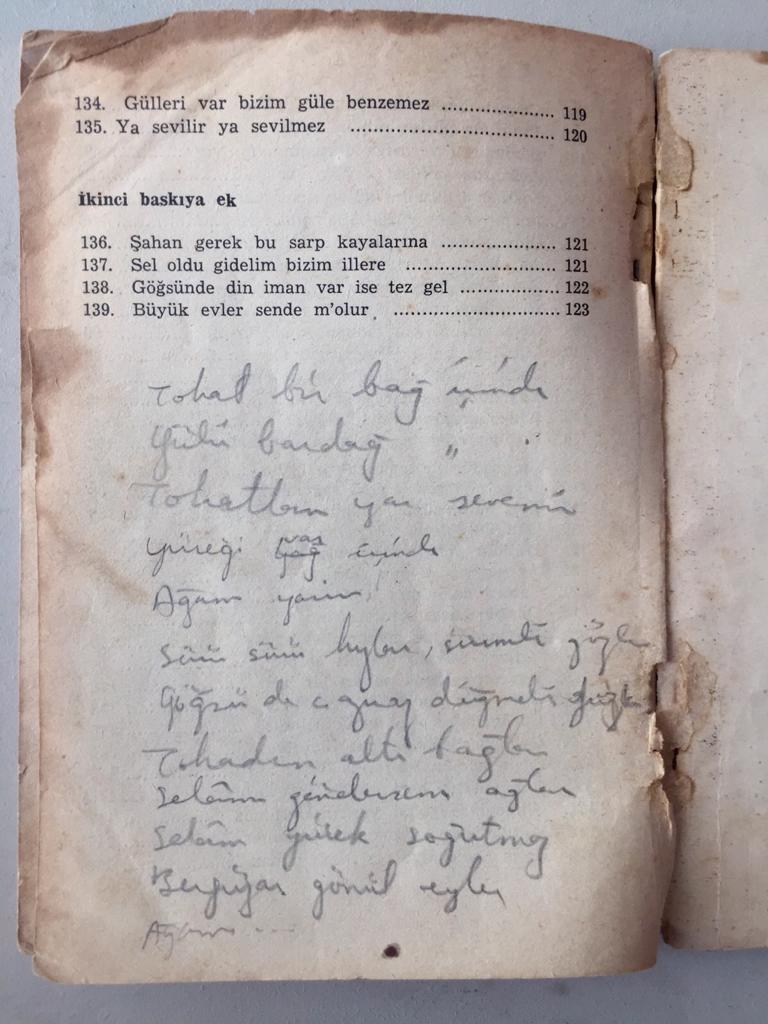 134. Gülleri var bizim güle benzemez .................... 119
135. Ya sevilir ya sevilmez .................................... 120
İkinci baskıya ek
136. Şahan gerek bu sarp kayalarına .................... 121
137. Sel oldu gidelim bizim illere .......................... 121
138. Göğsünde din iman var ise tez gel ................. 122
139. Büyük evler sende m'olur .............................. 123
Tokat bir bağ içinde
Gülü bardağ "
Tokattan yar sevenin
Yüreği yağ içinde
Ağam yarim!
Sürü sürü , sürmeli gözler
Göğsü de düğmeli
Tokadın altı bağlar
Selâm göndersem ağlar
Selâm yürek soğutmaz
Bergüzar gönül eyler
Ağam ...